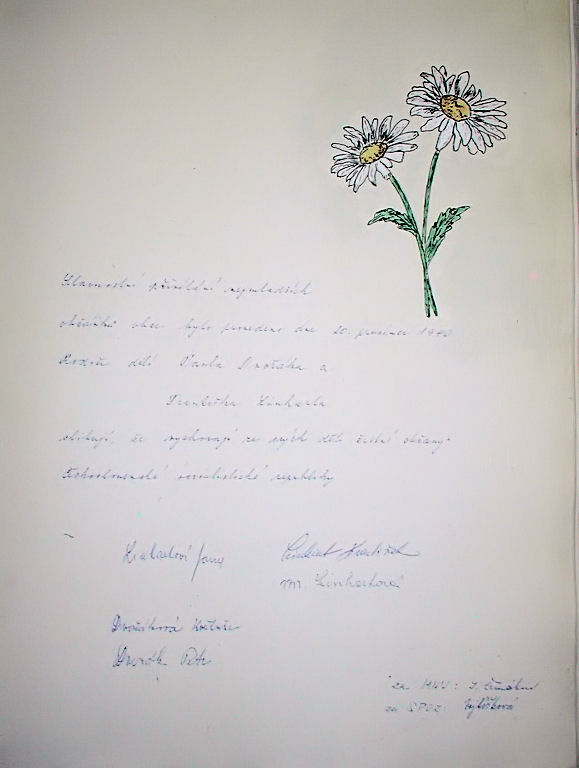 Slavnostní přivítání nejmladších
občánků obce bylo provedeno dne 20. prosince
Rodiče dětí Pavla Dvořáka a
Františka Linharta
slibují, že vychovají ze svých dětí čestné občany
Československé socialistické republiky
Linhart
m. Linhartová
Dvořáková
Dvořák Petr
za MNV: J.
za SPOZ: